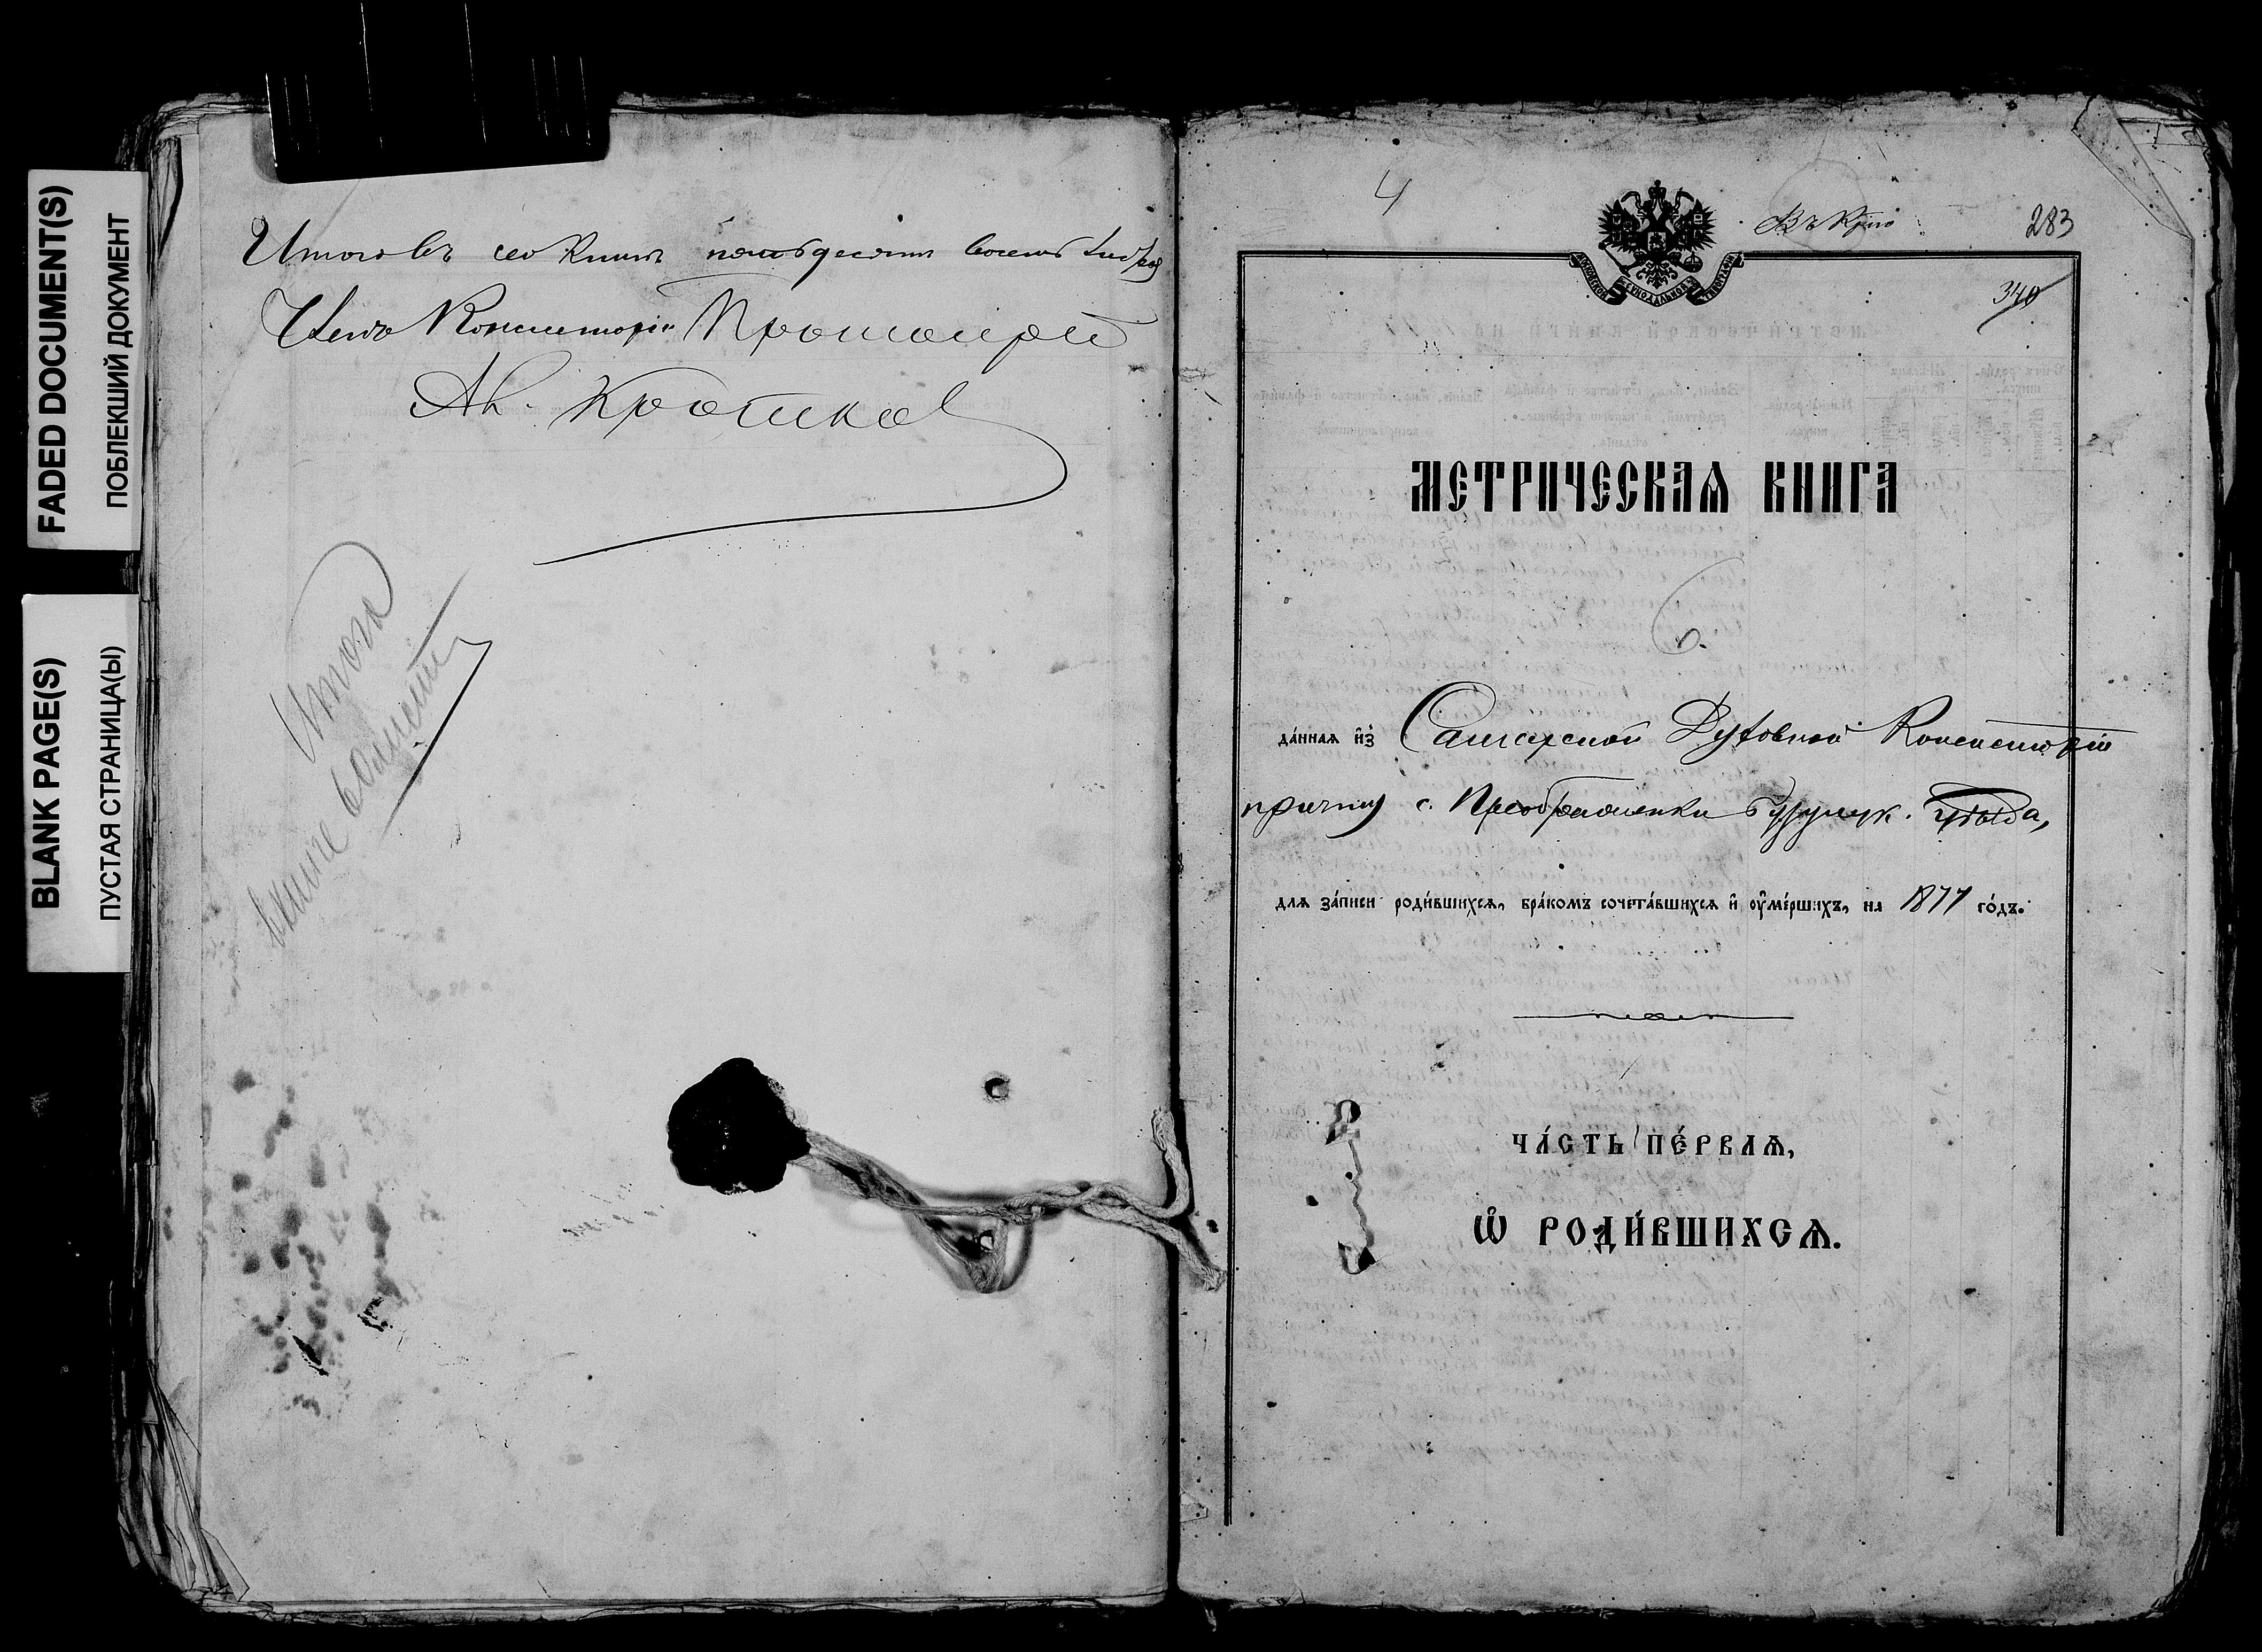 FADED DOCUMENT(S)
ПОБЛЕКШИЙ ДОКУМЕНТ
BLANK PAGE(S)
ПУСТАЯ СТРАНИЦА(Ы)
Итого въ сей книгѣ пятьдесятъ восемь листовъ
Членъ Консисторіи Протоіерей
Ан. Кротков
Итога
въ книге
4
283
340
МЕТРИЧЕСКАѦ КНИГА
да́ннаѧ и҆з̾ Самарской Духовной Консисторіи
причту с. Преображенки Бузулук. уѣзда,
длѧ за́писи роди́вшихсѧ, бра́комъ сочета́вшихсѧ и҆ ᲂу҆ме́ршихъ, на 1877 го́дъ.
ЧА́СТЬ ПЕ́РВАѦ,
Ѡ҆ РОДИ́ВШИХСѦ.